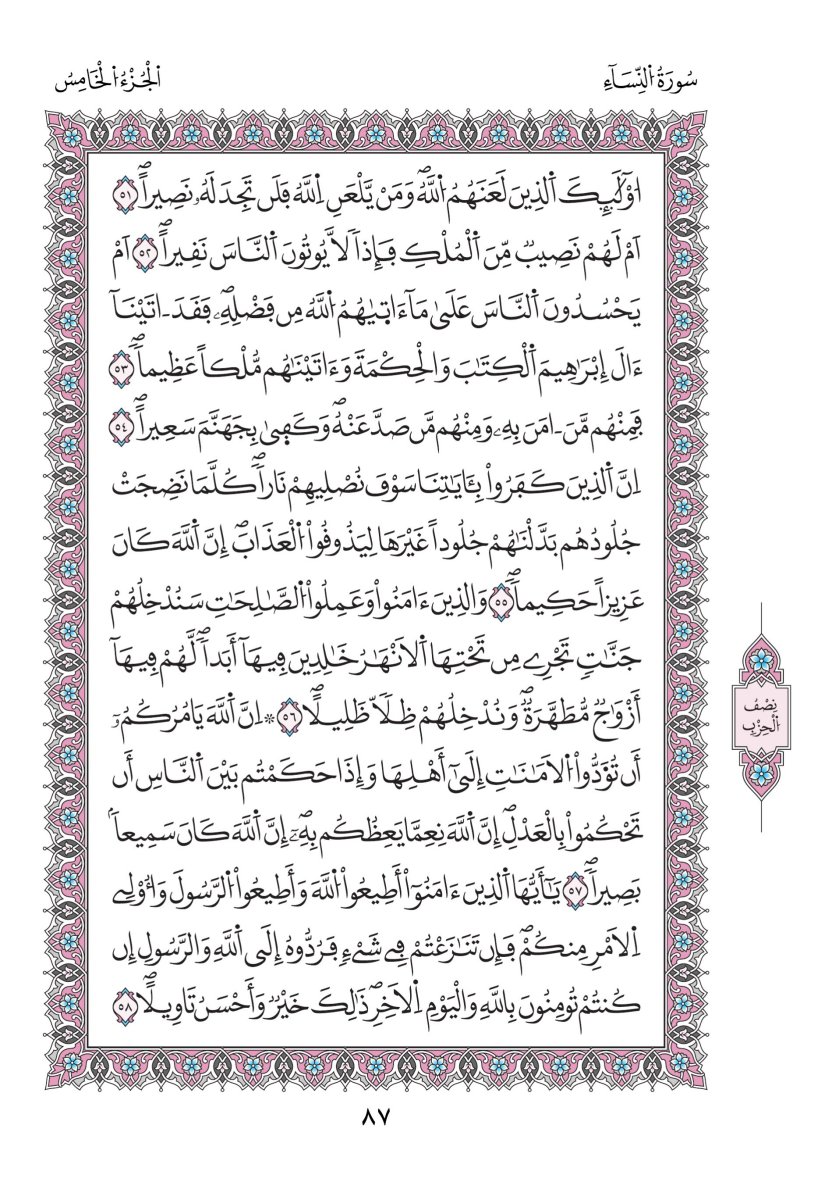 سُورَةُ اُ۬لنِّسَآءِ
اَ۬لْجُزْءُ اُ۬لْخَامِسُ
ا۟وْلَٰٓئِكَ اَ۬لذِينَ لَعَنَهُمُ اُ۬للَّهُۖ وَمَنْ يَّلْعَنِ اِ۬للَّهُ فَلَن تَجِدَ لَهُۥ نَصِيراًۖ ٥١
اَمْ لَهُمْ نَصِيبٞ مِّنَ اَ۬لْمُلْكِ فَإِذاٗ لَّا يُوتُونَ اَ۬لنَّاسَ نَقِيراًۖ ٥٢ اَمْ
يَحْسُدُونَ اَ۬لنَّاسَ عَلَىٰ مَآ ءَات۪يٰهُمُ اُ۬للَّهُ مِن فَضْلِهِۦۖ فَقَدَ ـ اتَيْنَآ
ءَالَ إِبْرَٰهِيمَ اَ۬لْكِتَٰبَ وَالْحِكْمَةَ وَءَاتَيْنَٰهُم مُّلْكاً عَظِيماًۖ ٥٣
فَمِنْهُم مَّنَ ـ امَنَ بِهِۦ وَمِنْهُم مَّن صَدَّ عَنْهُۖ وَكَف۪ىٰ بِجَهَنَّمَ سَعِيراًۖ ٥٤
اِنَّ اَ۬لذِينَ كَفَرُواْ بِـَٔايَٰتِنَا سَوْفَ نُصْلِيهِمْ نَاراٗۖ كُلَّمَا نَضِجَتْ
جُلُودُهُم بَدَّلْنَٰهُمْ جُلُوداً غَيْرَهَا لِيَذُوقُواْ اُ۬لْعَذَابَۖ إِنَّ اَ۬للَّهَ كَانَ
عَزِيزاً حَكِيماٗۖ ٥٥ وَالذِينَ ءَامَنُواْ وَعَمِلُواْ اُ۬لصَّٰلِحَٰتِ سَنُدْخِلُهُمْ
جَنَّٰتٖ تَجْرِے مِن تَحْتِهَا اَ۬لَانْهَٰرُ خَٰلِدِينَ فِيهَآ أَبَداٗۖ لَّهُمْ فِيهَآ
أَزْوَٰجٞ مُّطَهَّرَةٞۖ وَنُدْخِلُهُمْ ظِلّاٗ ظَلِيلًاۖ ٥٦ ۞ اِنَّ اَ۬للَّهَ يَامُرُكُمُۥٓ
أَن تُؤَدُّواْ اُ۬لَامَٰنَٰتِ إِلَىٰٓ أَهْلِهَا وَإِذَا حَكَمْتُم بَيْنَ اَ۬لنَّاسِ أَن
تَحْكُمُواْ بِالْعَدْلِۖ إِنَّ اَ۬للَّهَ نِعِمَّا يَعِظُكُم بِهِۦٓۖ إِنَّ اَ۬للَّهَ كَانَ سَمِيعاَۢ
بَصِيراٗۖ ٥٧ يَٰٓأَيُّهَا اَ۬لذِينَ ءَامَنُوٓاْ أَطِيعُواْ اُ۬للَّهَ وَأَطِيعُواْ اُ۬لرَّسُولَ وَأُوْلِے
اِ۬لَامْرِ مِنكُمْۖ فَإِن تَنَٰزَعْتُمْ فِے شَےْءٖ فَرُدُّوهُ إِلَى اَ۬للَّهِ وَالرَّسُولِ إِن
كُنتُمْ تُومِنُونَ بِاللَّهِ وَالْيَوْمِ اِ۬لَاخِرِۖ ذَٰلِكَ خَيْرٞ وَأَحْسَنُ تَاوِيلًاۖ ٥٨
نِصْفُ
اُ۬لْحِزْبِ
٨٧